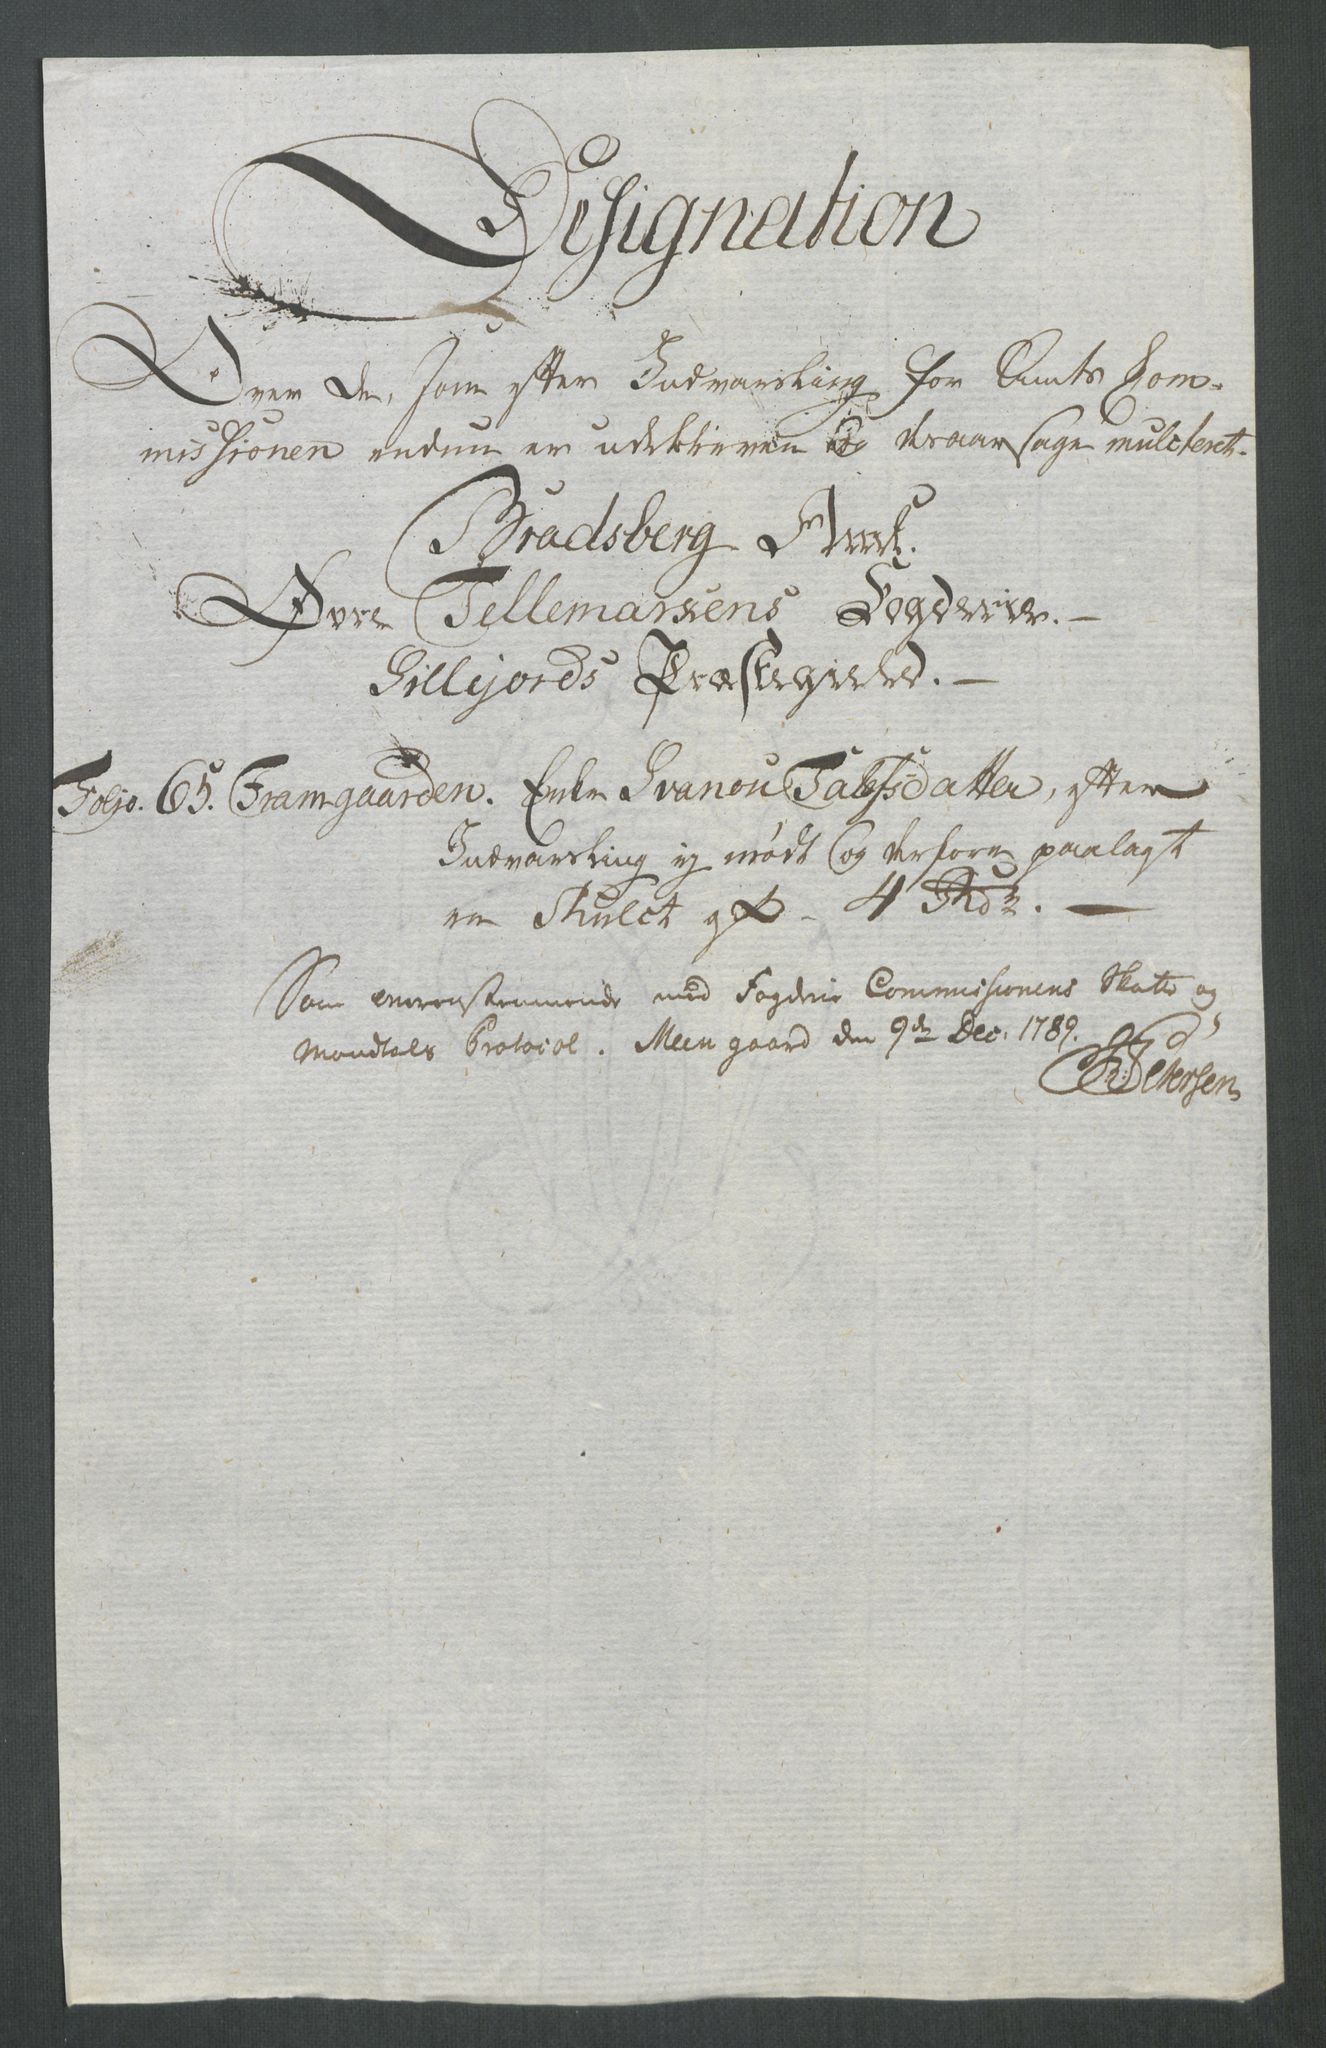 Designation
Over de, som efter Indvarsling for Amts Com-
missionen endnu er udebleven og desaarsage mulcteret.
Bradsberg Amt.
Øvre Tellemarkens Fogderie.—
Sillejords Præstegield.—
Foljo. 65. Framgaarden. Enke Svanou Talefsdatter, efter
Indvarsling ej mødt og derfore paalagt
en Mulct af – 4 Rdr. —
Som overenstemmende med Fogderie Commissionens Skatte og
Mandtals Protocol. Meengaard den 9de Dec. 1789.
Petersen